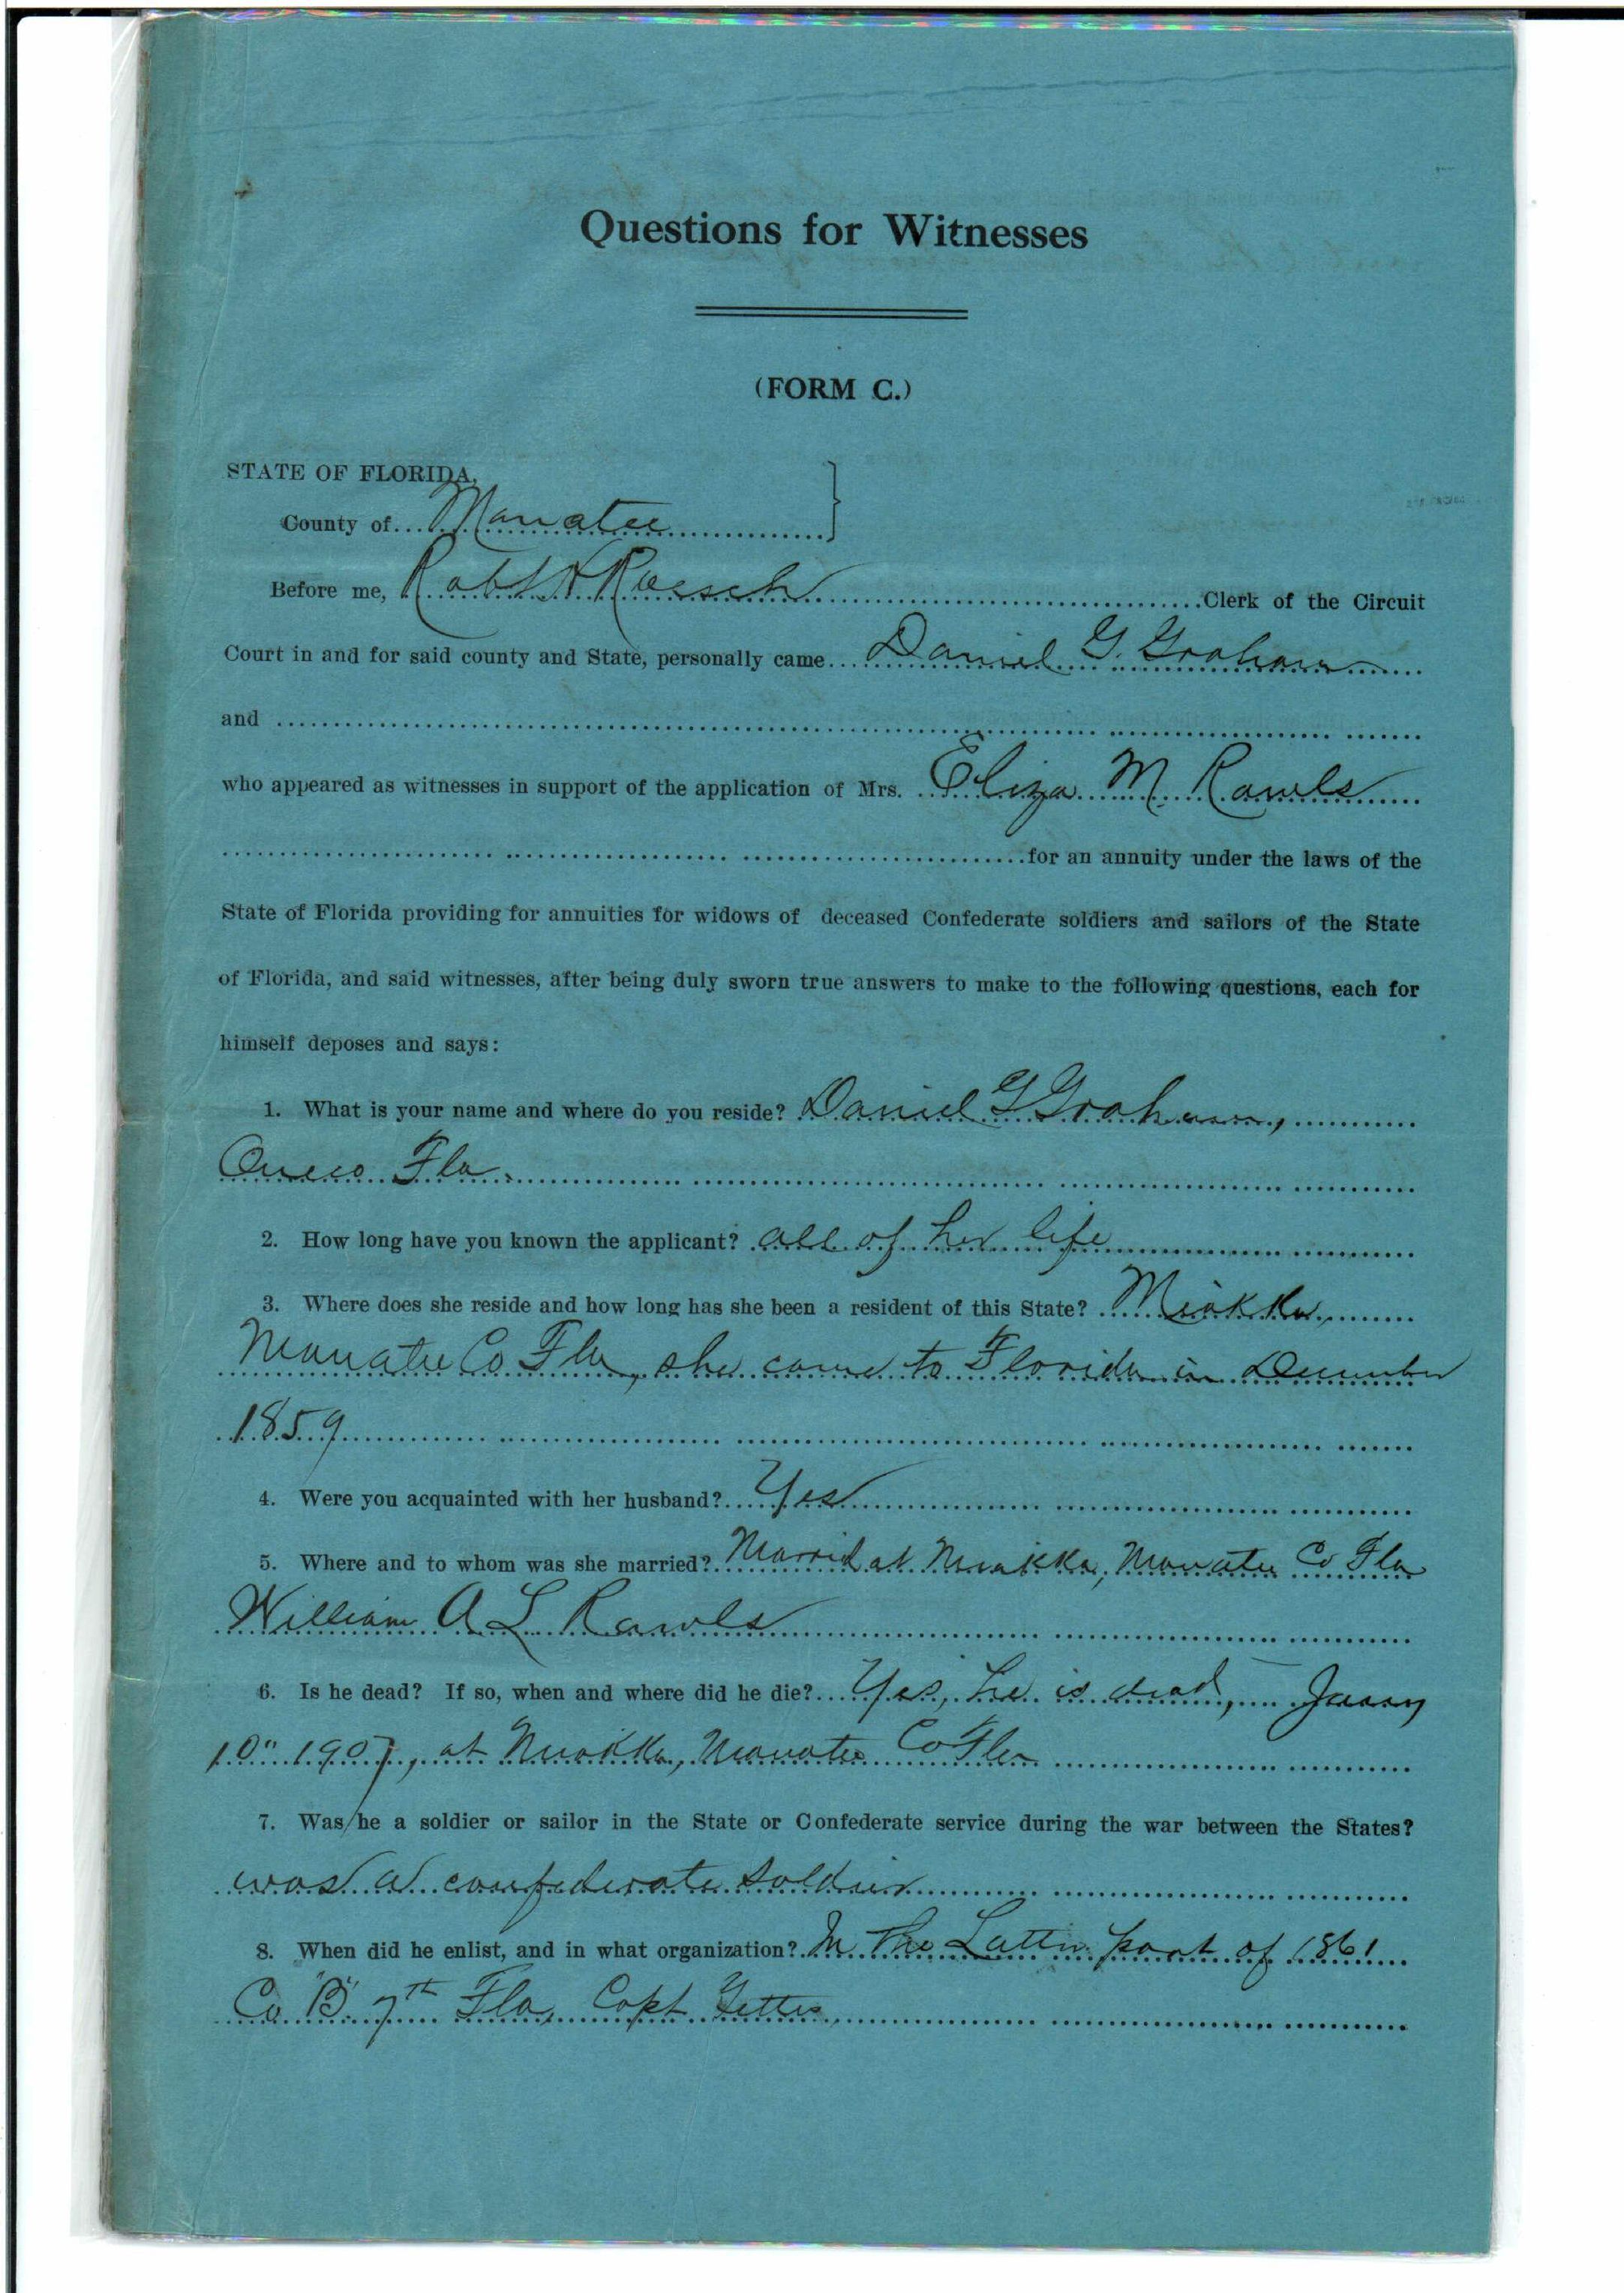 Questions for Witnesses
(FORM C.)
STATE OF FLORIDA,
County of Manatee
Before me, Robt H Roesch Clerk of the Circuit
Court in and for said county and State, personally came Daniel G. Graham
and
who appeared as witnesses in support of the application of Mrs. Eliza M Rawls
for an annuity under the laws of the
State of Florida providing for annuities for widows of deceased Confederate soldiers and sailors of the State
of Florida, and said witnesses, after being duly sworn true answers to make to the following questions, each for
himself deposes and says:
1. What is your name and where do you reside? Daniel G Graham,
Oneco Fla.
2. How long have you known the applicant? all of her life
3. Where does she reside and how long has she been a resident of this State? Miakka,
Manatee Co Fla, she came to Florida in December
1859
4. Were you acquainted with her husband? Yes
5. Where and to whom was she married? Married at Miakka, Manatee Co Fla
William A L Rawls
6. Is he dead? If so, when and where did he die? Yes, he is dead,
10" 1907, at Miakka, Manatee Co Fla
7. Was he a soldier or sailor in the State or Confederate service during the war between the States?
was a confederate soldier
8. When did he enlist, and in what organization? In the Latter part of 1861
Co "B" 7th Fla, Capt Gettis